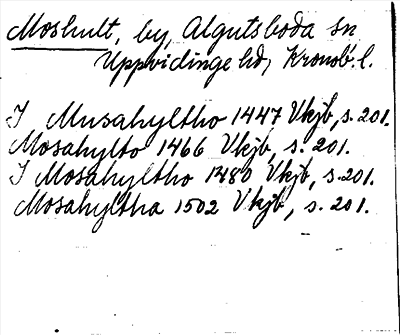 Moshult, by, Algutsboda sn
Uppvidinge hd, Kronob. l.
I Musahyltho 1447 Vkjb, s. 201.
Mosahylto 1466 Vkjb, s. 201.
I Mosahyltho 1480 Vkjb, s. 201.
Mosahyltha 1502 Vkjb, s. 201.